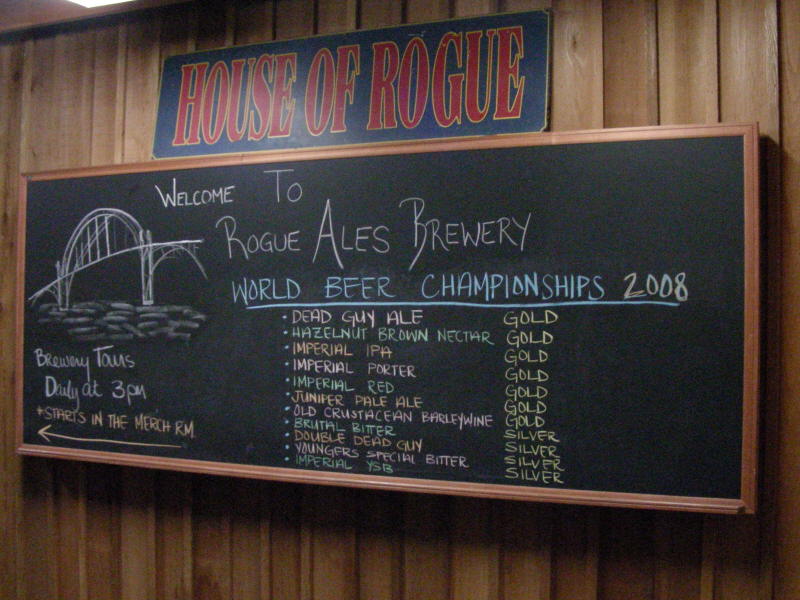 HOUSE OF ROGUE
WELCOME TO
ROGUE ALES BREWERY
WORLD BEER CHAMPIONSHIPS 2008
• DEAD GUY ALE GOLD
• HAZELNUT BROWN NECTAR GOLD
• IMPERIAL IPA GOLD
• IMPERIAL PORTER GOLD
• IMPERIAL RED GOLD
• JUNIPER PALE ALE GOLD
• OLD CRUSTACEAN BARLEYWINE GOLD
• BRUTAL BITTER SILVER
• DOUBLE DEAD GUY SILVER
• YOUNGERS SPECIAL BITTER SILVER
• IMPERIAL YSB SILVER
Brewery Tours
Daily at 3pm
*STARTS IN THE MERCH RM.